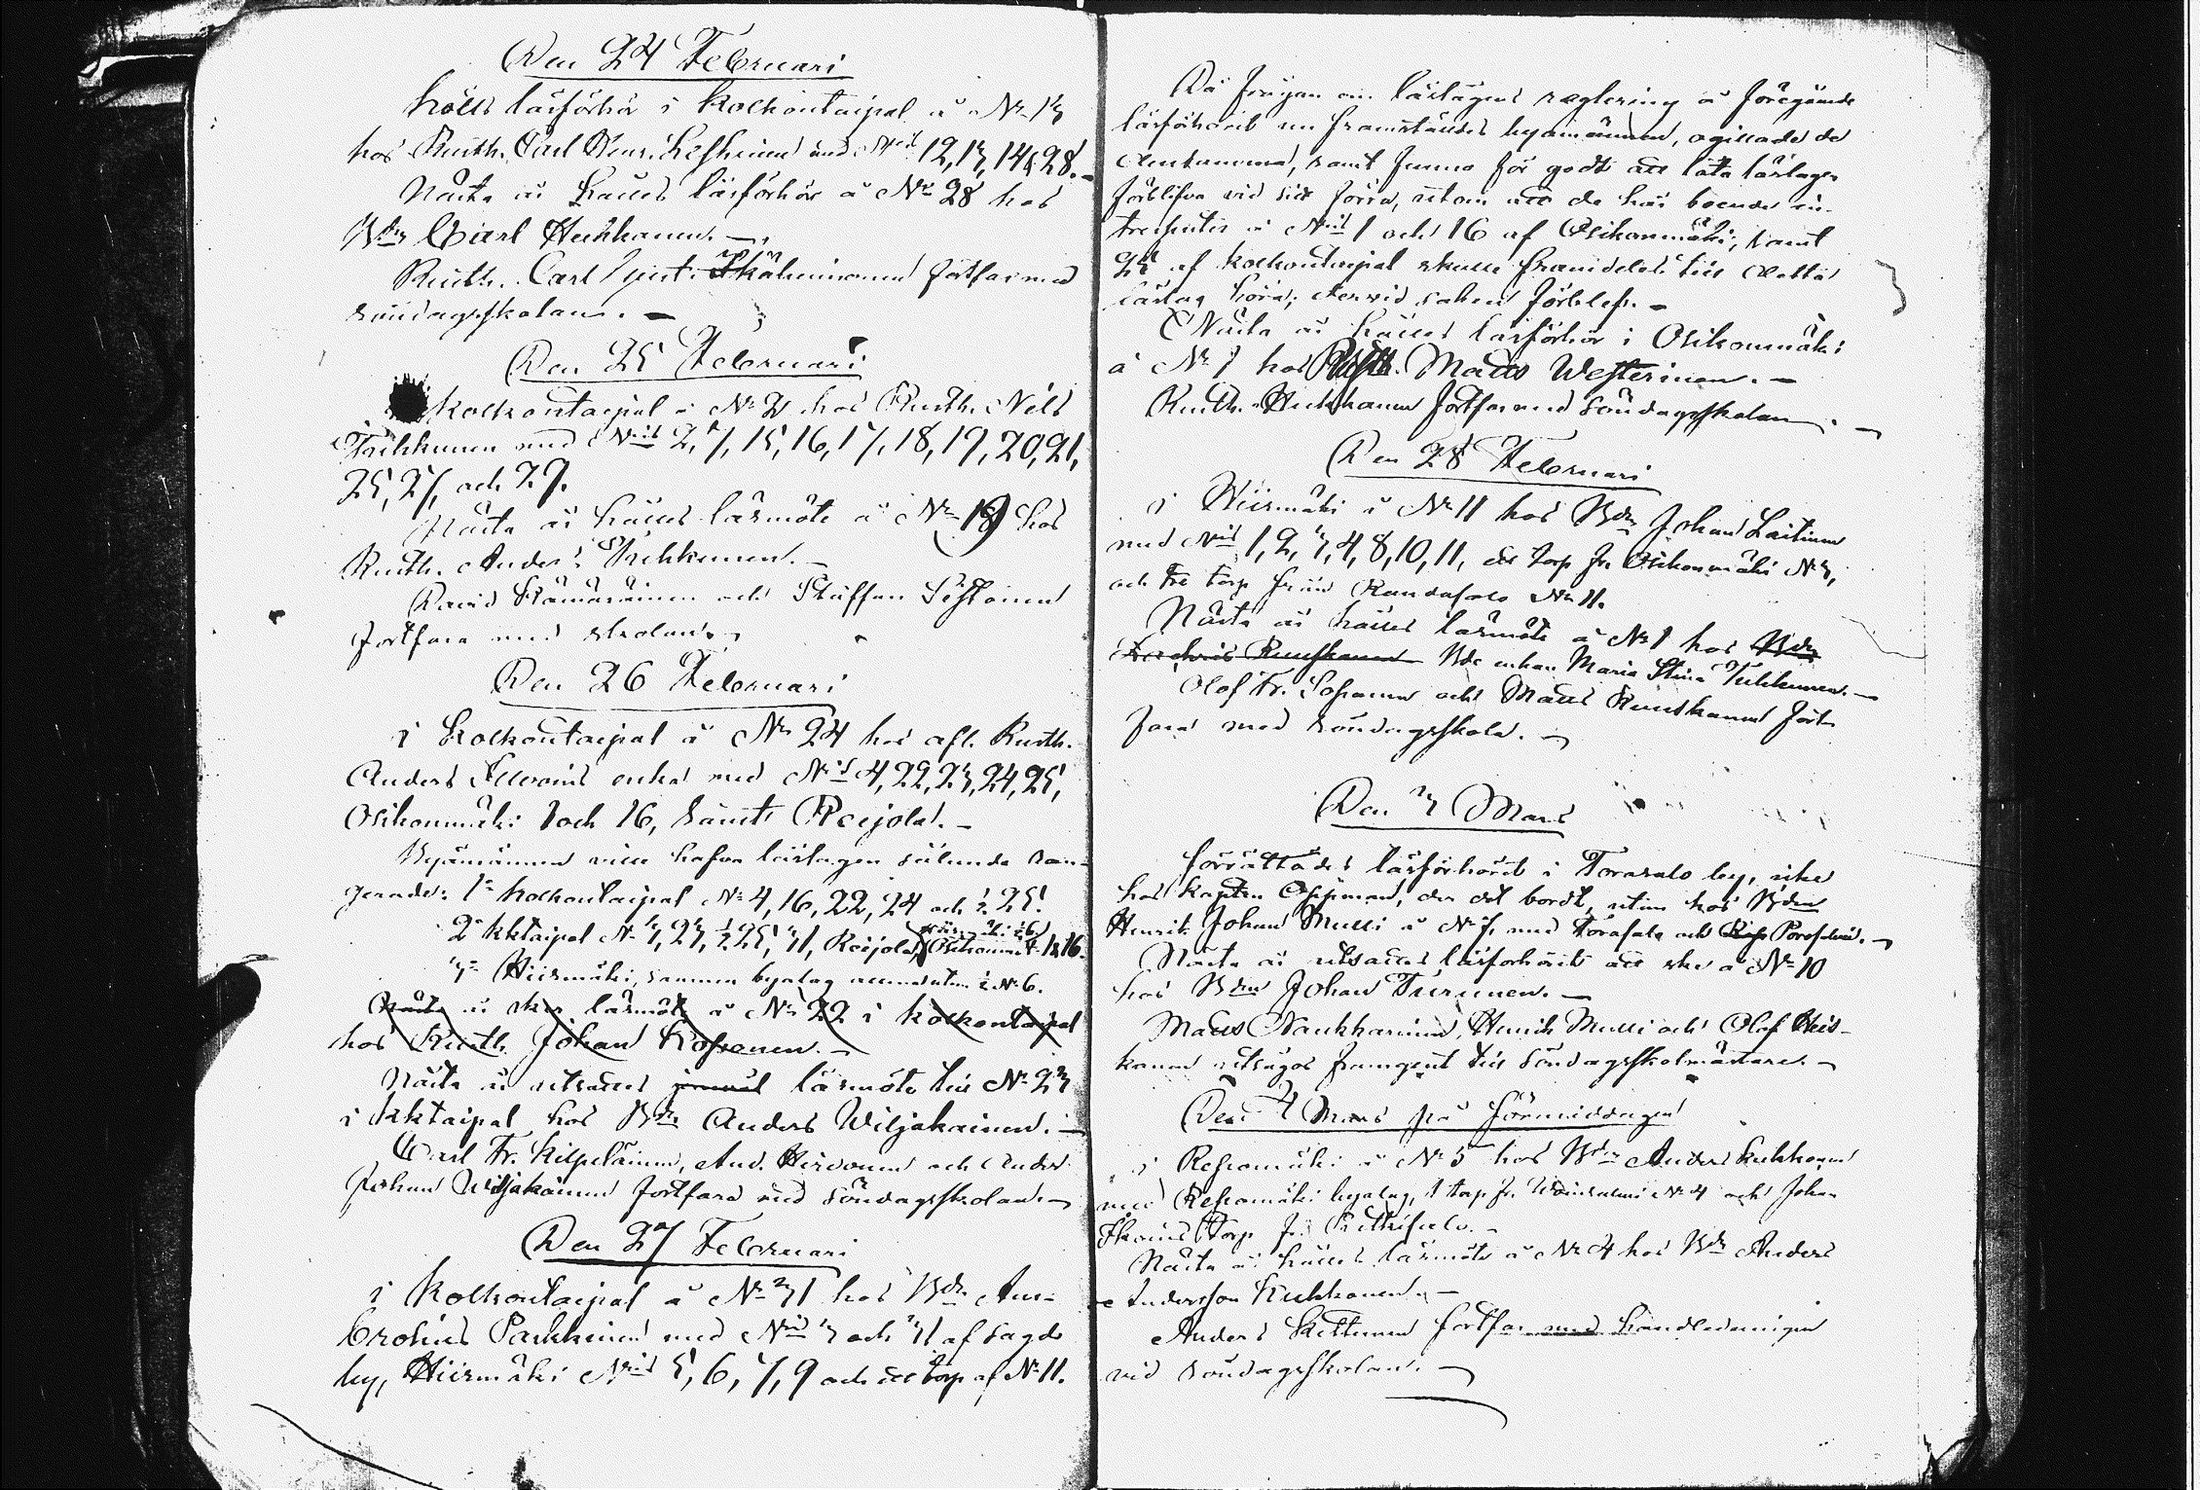 Den 24 Februari
hölls läsförhör i Kolkontaipal å No 13
hos Rusth. Carl Henr. med Nris 12, 13, 14 & 28. –
Nästa år hålles läsförhör å No 28 hos
Bdn Carl Heikkanen. –
Rusth. Carl fortfar med
söndagsskolan. –
Den 25 Februari
i Kolkontaipal å No 2 hos Rusth. Nils
Tirkkunen med Nris 2, 7, 15, 16, 17, 18, 19, 20, 21,
25, 27, och 29.
Nästa år hålles läsmöte å No 19 hos
Rusth. Anders Tirkkunen. –
David Hämäläinen och Staffan
fortfara med skolan. –
Den 26 Februari
i Kolkontaipal å No 24 hos afl. Rusth.
Anders enka med Nris 4, 22, 23, 24, 25,
Osikonmäki 1 och 16, samt Reijola. –
Byamännen ville hafva läslagen sålunda ran-
gerade: 1o Kolkontaipal No 4, 16, 22, 24 och ½ 25.
2o Kktaipal No 3, 23, ½ 25, 31, Reijola, Osikonmäki 1 & 16.
3o Hiismäki, samma byalag utom No 6.
Nästa år sker läsmöte å No 22 i Kolkontaipal
hos Rusth. Johan Kosonen. –
Nästa år utsattes läsmöte till No 23
i Kktaipal hos Bdn Anders Wiljakainen. –
Carl Fr. Kilpeläinen, And. Hirvonen och Anders
Johan Wiljakainen fortfara med söndagsskolan. –
Den 27 Februari
i Kolkontaipal å No 31 hos Bdn Am-
brosius Parkkinen med Nris 3 och 31 af sagde
by, Hiismäki Nris 5, 6, 7, 9 och ett torp af No 11.
Då frågan om läslagens reglering å föregående
läsförhörit framställdes byamännen, ogillade de
samt funno för godt att låta läslagen
förblifva vid sitt förra, utom att de boende
å Nris 1 och 16 af Osikonmäki, samt
af Kolkontaipal skulle framdeles till detta
läslag höra; dervid saken förblef. –
Nästa år hålles läsförhör i Osikonmäki
å No 1 hos Rusth. Matts Westerinen. –
Rusth. Heikkanen fortfar med söndagsskolan. –
Den 28 Februari
i Hiismäki å No 11 hos Bdn Johan Laitinen
med Nris 1, 2, 3, 4, 8, 10, 11, ett torp fr. Osikonmäki No 3,
och tre torp från No 11.
Nästa år hålles läsmöte å No 1 hos Bdn
Bde enkan Maria Stina Tirkkunen. –
Olof Fr. och Matts fort-
fara med söndagsskola. –
Den 3 Mars
förrättades läsförhörit i Torasalo by, icke
hos Kapten Chipman, der det bordt, utan hos Bdn
Henrik Johan Mulli å No 7, med Torasalo och Porosalmi. –
Nästa år utsattes läsförhörit att ske å No 10
hos Bdn Johan Turunen. –
Matts Naukkarinen, Henrik Mulli och Olof Heis-
kanen utsågos framgent till söndagsskolmästare. –
Den 4 Mars på förmiddagen
i Repomäki å No 5 hos Bdn Anders Kukkonen
med Repomäki byalag, 1 torp fr. No 4 och Johan
Torp fr.
Nästa år hålles läsmöte å No 4 hos Bdn Anders
Andersson Kukkonen. –
Anders Kettunen fortfar med handledningen
vid söndagsskolan. –